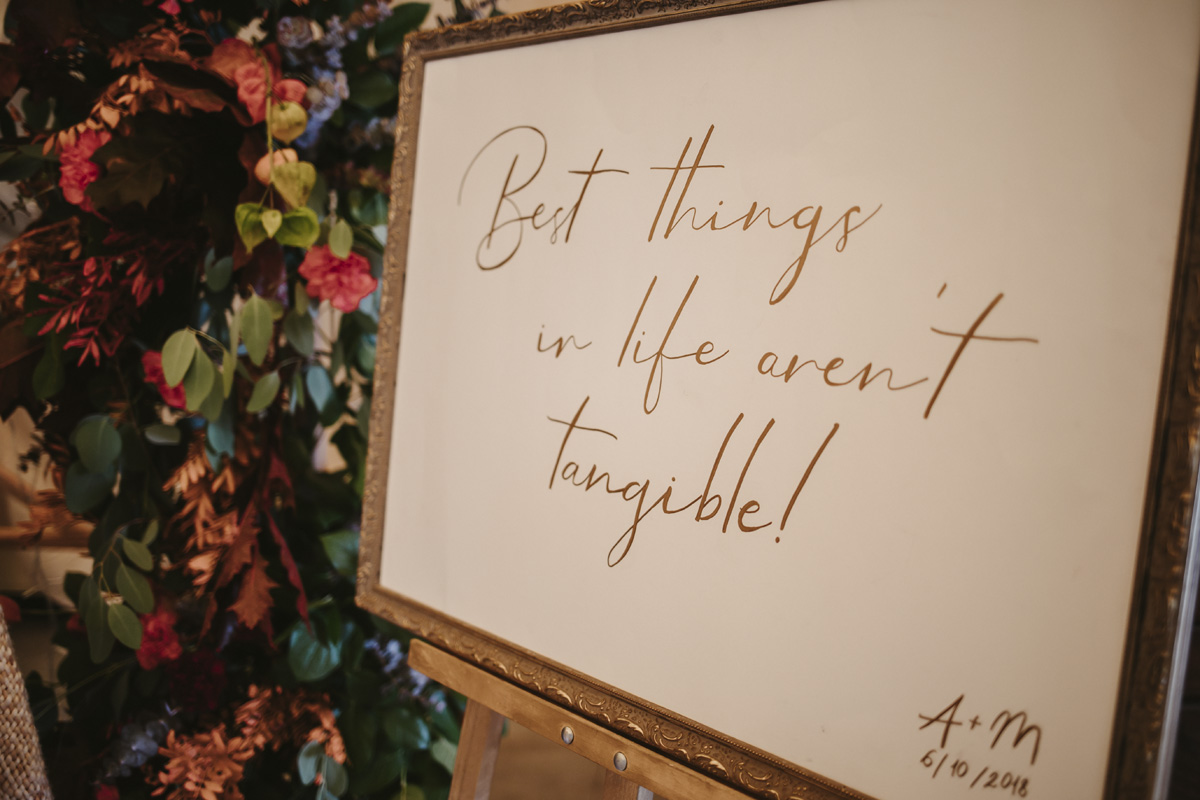 Best things
in life aren't
tangible!
A+M
6/10/2018